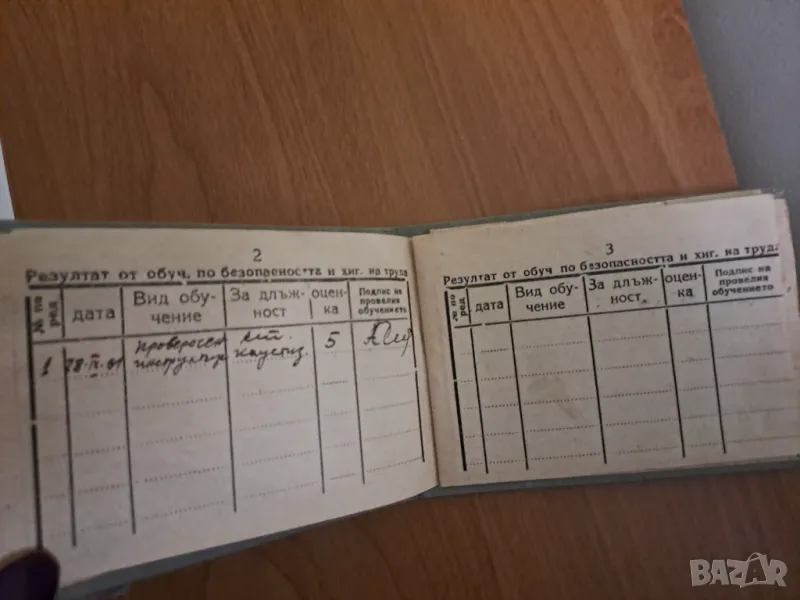 2
Резултат от обуч. по безопасността и хиг. на труда
№ по ред
дата
Вид обу-
чение
За длъж-
ност
оцен-
ка
Подпис на
провелия
обучението
1
5
3
Резултат от обуч по безопасността и хиг. на труда
№ по ред
дата
Вид обу-
чение
За длъж-
ност.
оцен-
ка
Подпис на
провелия
обучението
BAZAR